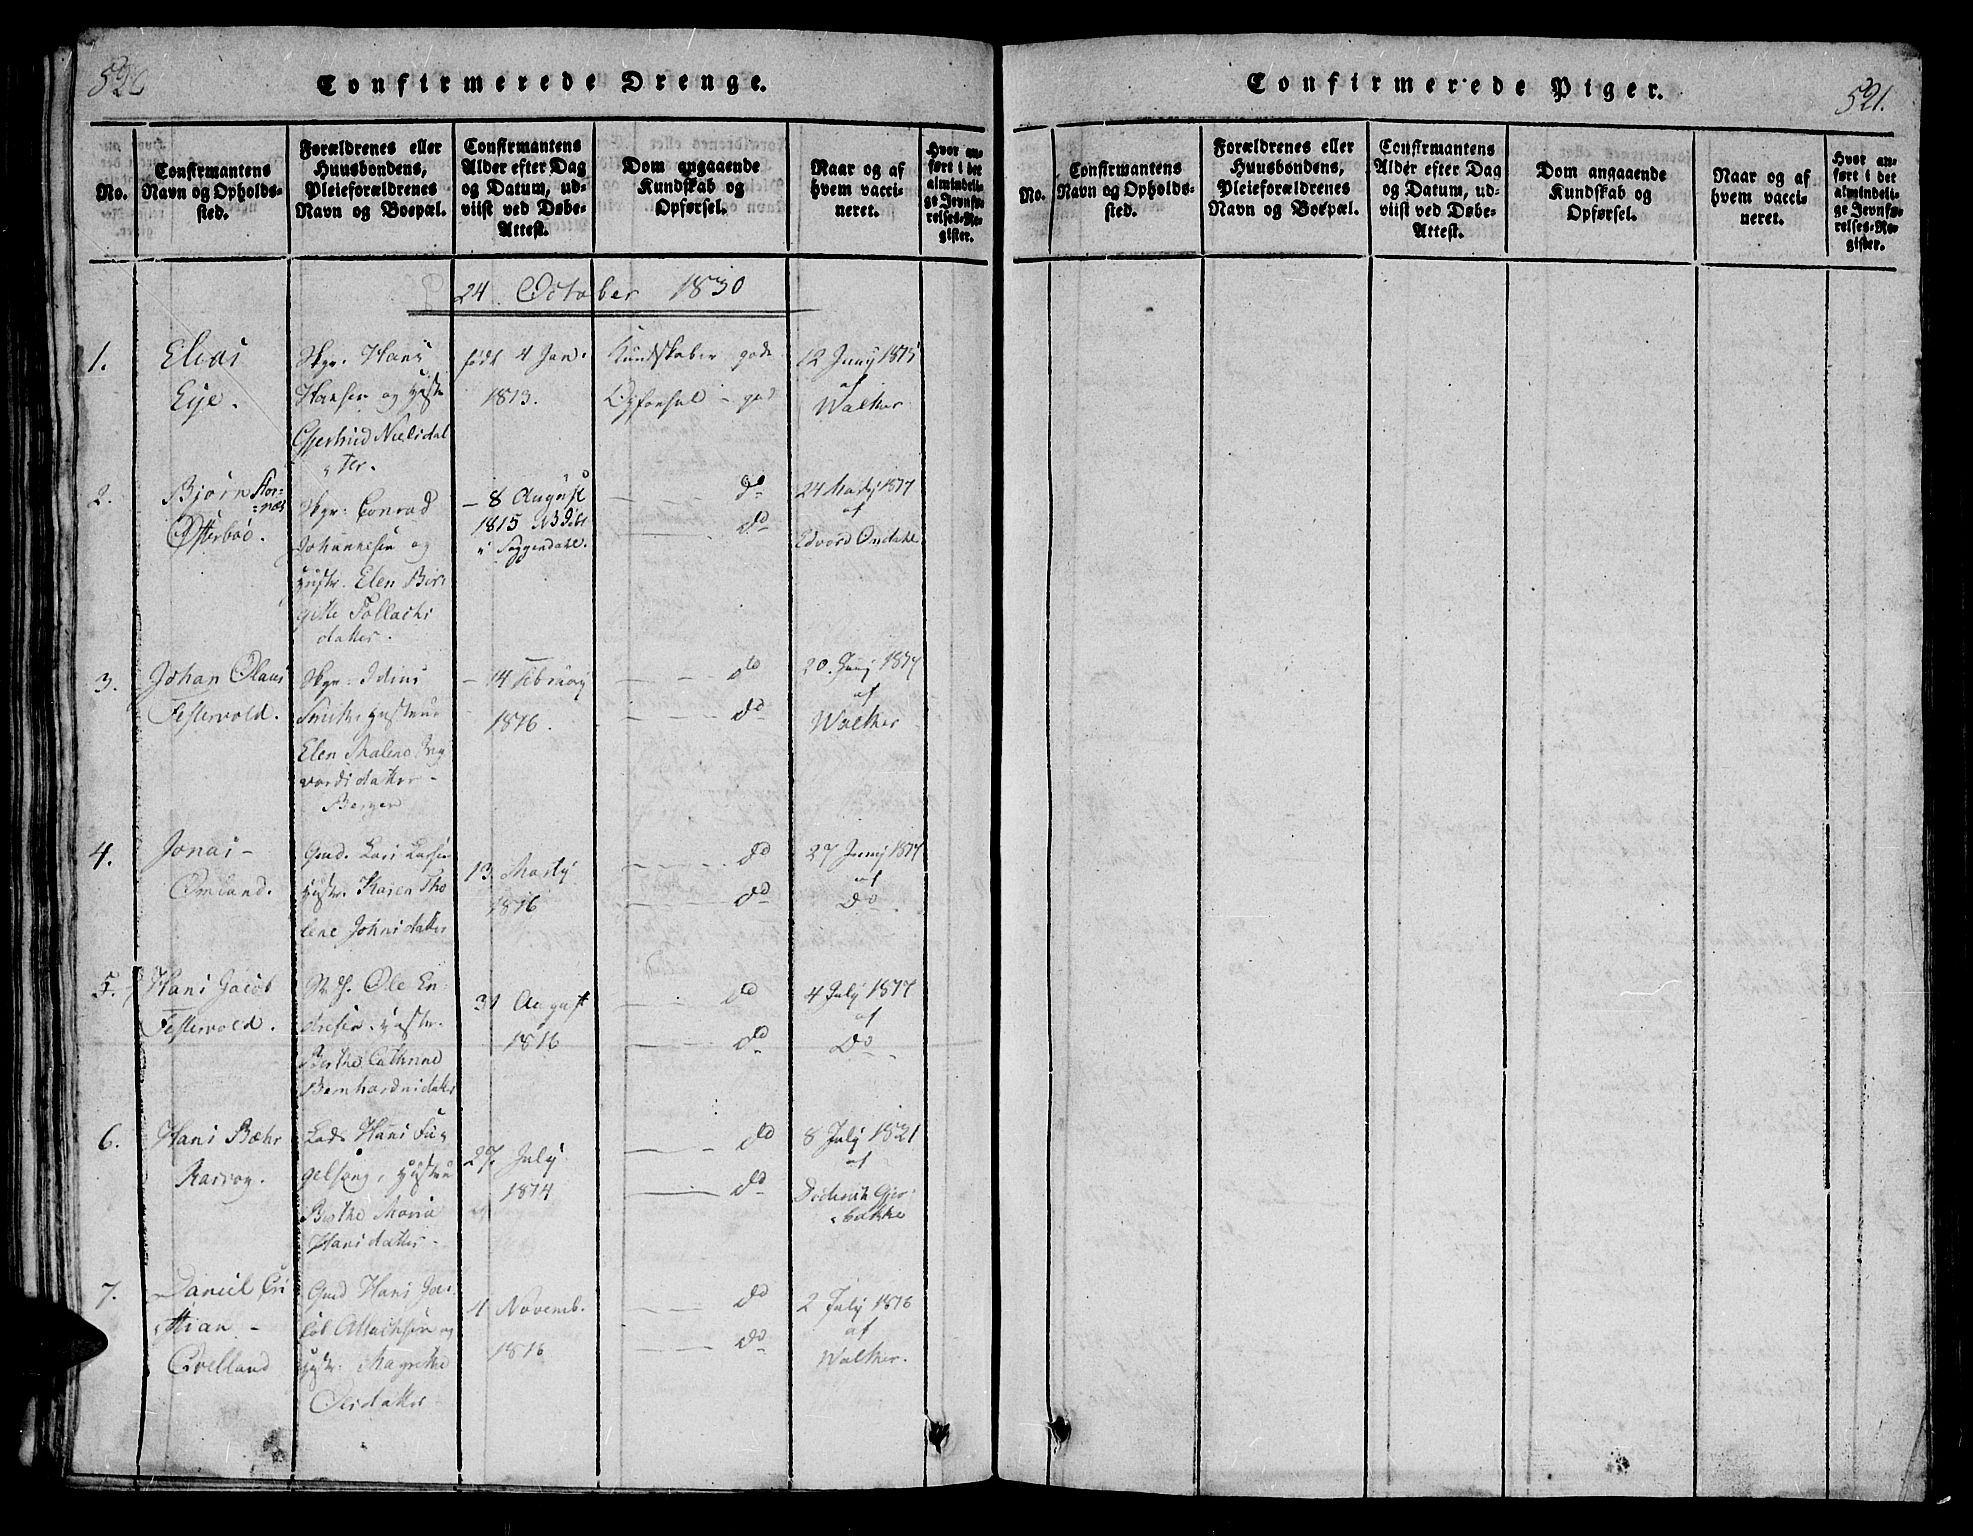 520
Confirmerede Drenge.
No.
Confirmantens
Navn og Opholds-
sted.
Forældrenes eller
Huusbondens,
Pleieforældrenes
Navn og Boepæl.
Confirmantens
Alder efter Dag
og Datum, ud-
viist ved Døbe-
Attest.
Dom angaaende
Kundskab og
Opførsel.
Naar og af
hvem vacci-
neret.
Hvor an-
ført i det
almindeli-
ge Jevnfø-
relses-Re-
gister.
24 October 1830
1.
Elias
Eye.
Skpr. Hans
Hansen og Hustr
Gjertrud Nielsdat
ter.
født 4 Jan.
1813.
Kundskaber gode
Opførsel - god
12 Junij 1815
af
Walker
2.
Bjørn
Otterbøe.
Skpr. Conrad
Johannesen og
Hustr. Elen Bir
gitte Tollachs
datter.
- 8 August
1815
i Soggendahl.
do
do
24 Martj 1817
af
Edvard Omdahl
3.
Johan Olaus
Festervold.
Skpr.
Hustrue
Elen Malene Ing
vards datter
Berger
- 14 Februarj
1816.
do
do
20. Junj 1817
af
Walker
4.
Jonas -
Omland.
Gmd. Lars Larsen
Hustr. Karen Tho
lene Johnsdatter
13 Martj
1816
do
do
27 Junij 1817
af
Do
5.
Hans Jacob
Festervold.
Ole En-
dresen. Hustr.
Birthe Cathrine
Bernhardnsdatter
31 August
1816
do
do
4 July 1817
af
Do
6.
Hans Bæhr
Rasvog.
Lods Hans Fu
gelsang, Hustrue
Birthe Maria
Hansdatter -
27. July
1814
do
do
8 July 1821
af
Diderich Gjes-
bakke
7.
Daniel Cri
stian -
Qvelland
Gmd Hans Ja-
cob Mathisen og
Hustr. Magrethe
datter -
4 Novemb.
1816
do
do
2 July 1816
af
Walker.
Confirmerede Piger.
521.
No.
Confirmantens
Navn og Opholds-
sted.
Forældrenes eller
Huusbondens,
Pleieforældrenes
Navn og Boepæl.
Confirmantens
Alder efter Dag
og Datum, ud-
viist ved Døbe-
Attest.
Dom angaaende
Kundskab og
Opførsel.
Naar og af
hvem vacci-
neret.
Hvor an-
ført i det
almindeli-
ge Jevnfø-
relses-Re-
gister.